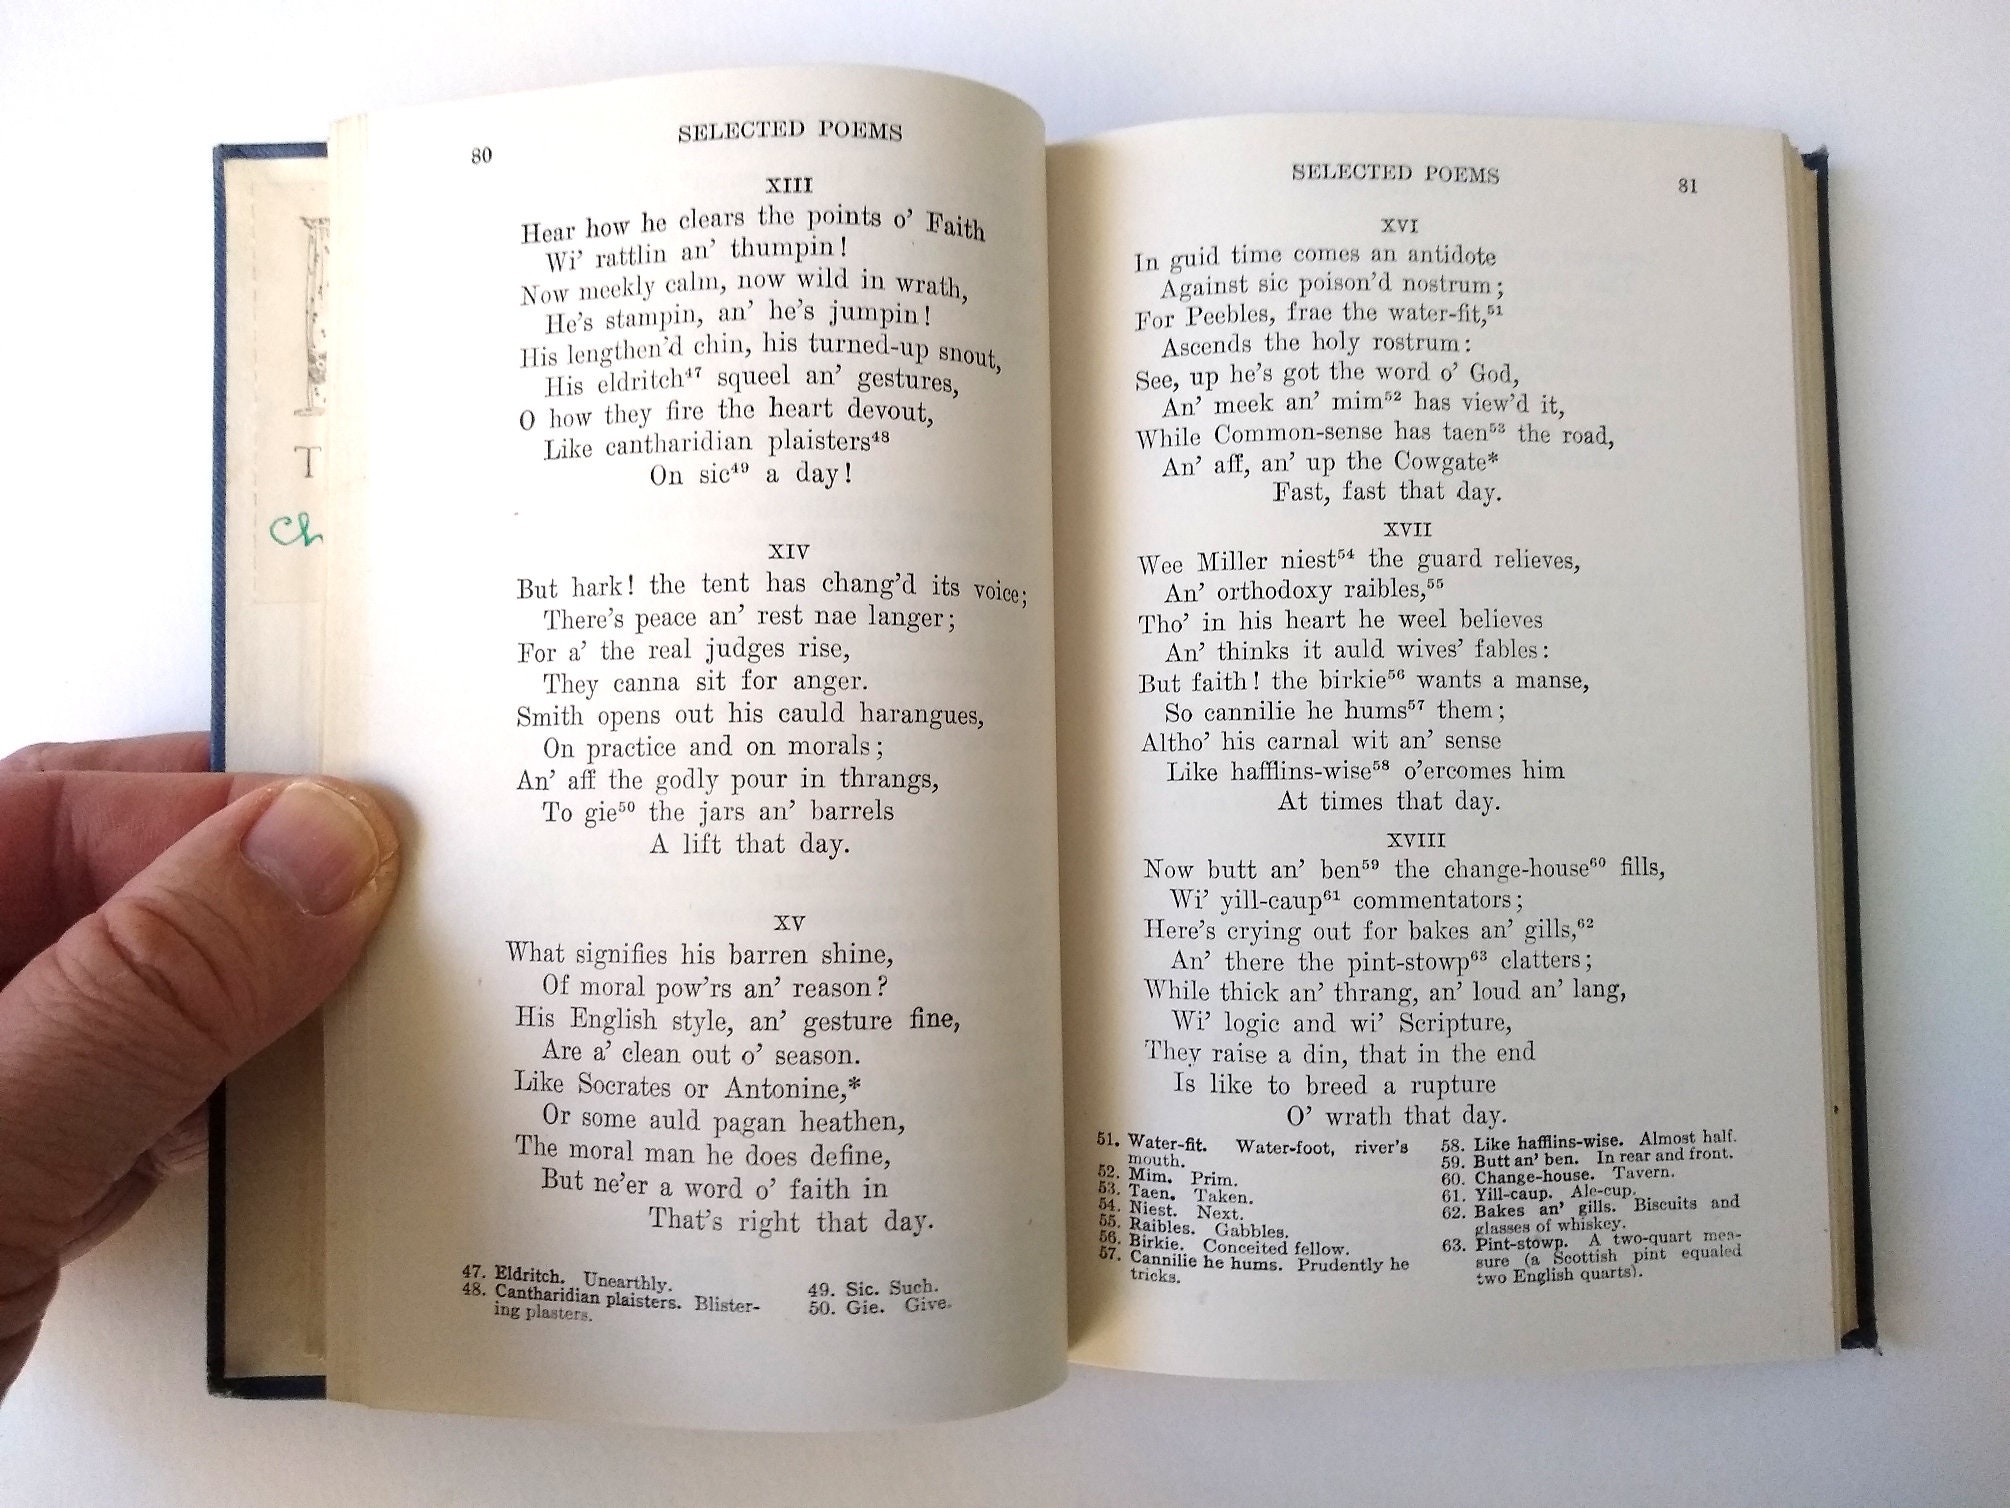 T
Ch
80
SELECTED POEMS
XIII
Hear how he clears the points o' Faith
Wi' rattlin an' thumpin!
Now meekly calm, now wild in wrath,
He's stampin, an' he's jumpin!
His lengthen'd chin, his turned-up snout,
His eldritch⁴⁷ squeel an' gestures,
O how they fire the heart devout,
Like cantharidian plaisters⁴⁸
On sic⁴⁹ a day!
XIV
But hark! the tent has chang'd its voice;
There's peace an' rest nae langer;
For a' the real judges rise,
They canna sit for anger.
Smith opens out his cauld harangues,
On practice and on morals;
An' aff the godly pour in thrangs,
To gie⁵⁰ the jars an' barrels
A lift that day.
XV
What signifies his barren shine,
Of moral pow'rs an' reason?
His English style, an' gesture fine,
Are a' clean out o' season.
Like Socrates or Antonine,*
Or some auld pagan heathen,
The moral man he does define,
But ne'er a word o' faith in
That's right that day.
47. Eldritch. Unearthly.
48. Cantharidian plaisters. Blister-
ing plasters.
49. Sic. Such.
50. Gie. Give.
SELECTED POEMS
81
XVI
In guid time comes an antidote
Against sic poison'd nostrum;
For Peebles, frae the water-fit,⁵¹
Ascends the holy rostrum:
See, up he's got the word o' God,
An' meek an' mim⁵² has view'd it,
While Common-sense has taen⁵³ the road,
An' aff, an' up the Cowgate*
Fast, fast that day.
XVII
Wee Miller niest⁵⁴ the guard relieves,
An' orthodoxy raibles,⁵⁵
Tho' in his heart he weel believes
An' thinks it auld wives' fables:
But faith! the birkie⁵⁶ wants a manse,
So cannilie he hums⁵⁷ them;
Altho' his carnal wit an' sense
Like hafflins-wise⁵⁸ o'ercomes him
At times that day.
XVIII
Now butt an' ben⁵⁹ the change-house⁶⁰ fills,
Wi' yill-caup⁶¹ commentators;
Here's crying out for bakes an' gills,⁶²
An' there the pint-stowp⁶³ clatters;
While thick an' thrang, an' loud an' lang,
Wi' logic and wi' Scripture,
They raise a din, that in the end
Is like to breed a rupture
O' wrath that day.
51. Water-fit. Water-foot, river's
mouth.
52. Mim. Prim.
53. Taen. Taken.
54. Niest. Next.
55. Raibles. Gabbles.
56. Birkie. Conceited fellow.
57. Cannilie he hums. Prudently he
tricks.
58. Like hafflins-wise. Almost half.
59. Butt an' ben. In rear and front.
60. Change-house. Tavern.
61. Yill-caup. Ale-cup.
62. Bakes an' gills. Biscuits and
glasses of whiskey.
63. Pint-stowp. A two-quart mea-
sure (a Scottish pint equaled
two English quarts).